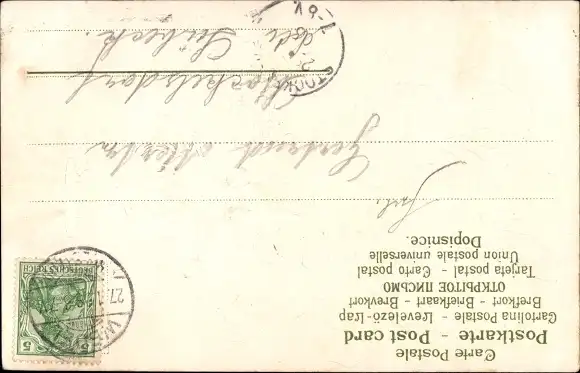 Carte Postale
Postkarte - Post card
Cartolina Postale - Levelező-Lap
Brefkort - Briefkaart - Brevkort
ОТКРЫТОЕ ПИСЬМО
Tarjeta postal - Carto postal
Union postale universelle
Dopisnice.
5
DEUTSCHES REICH
27
Frl.
Gertrud
Stockelsdorf
bei Lübeck.
STOCK